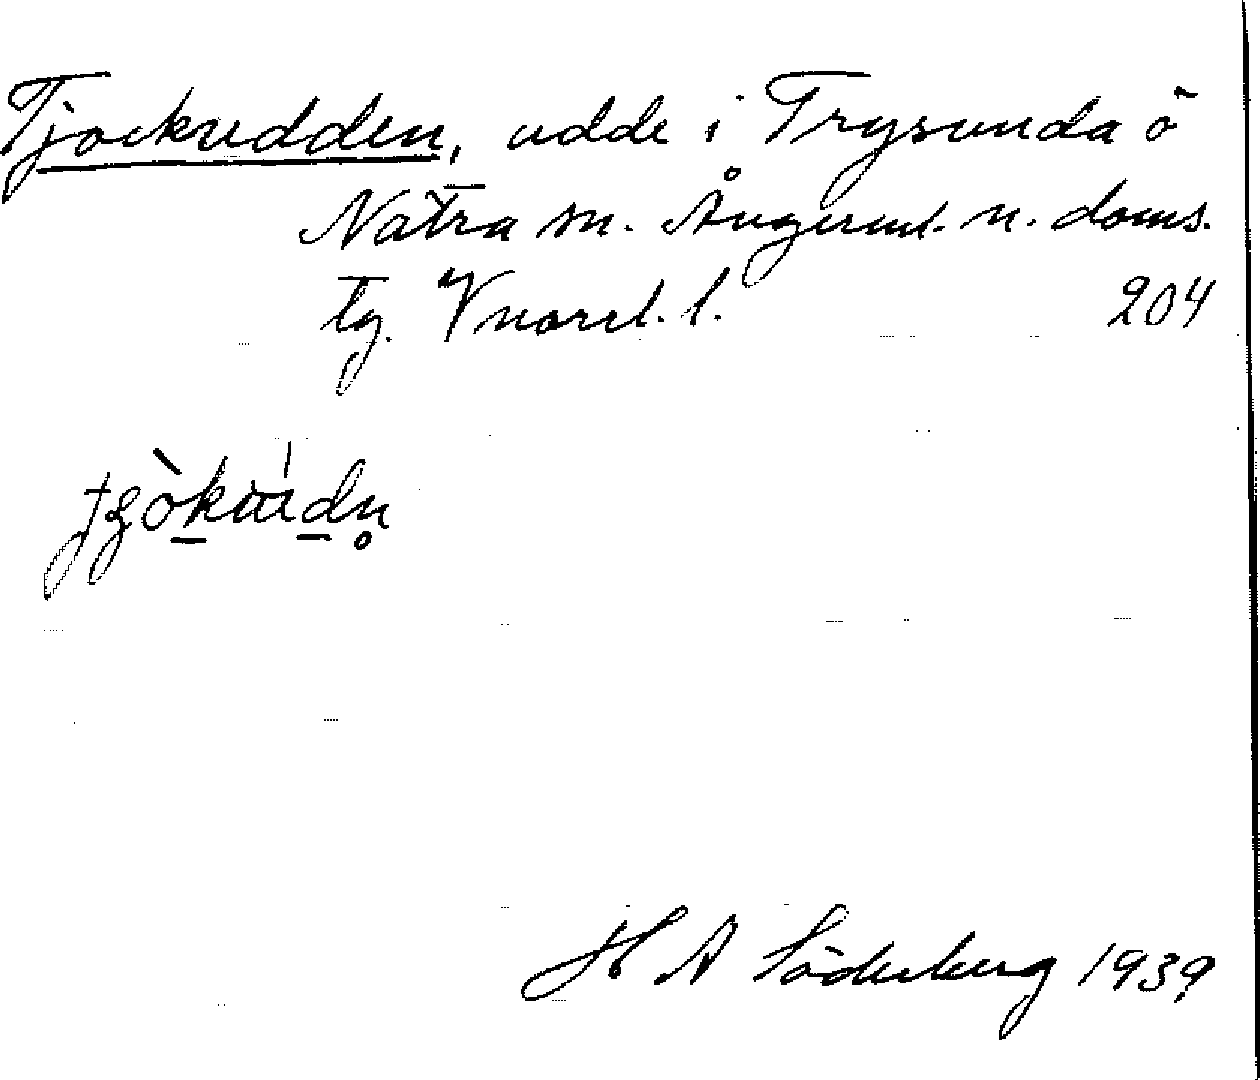 Tjockudden, udde i Trysunda ö
Nätra sn. Ångerml. n. doms.
tg. Vnorrl. l. 204
H A Söderberg 1939